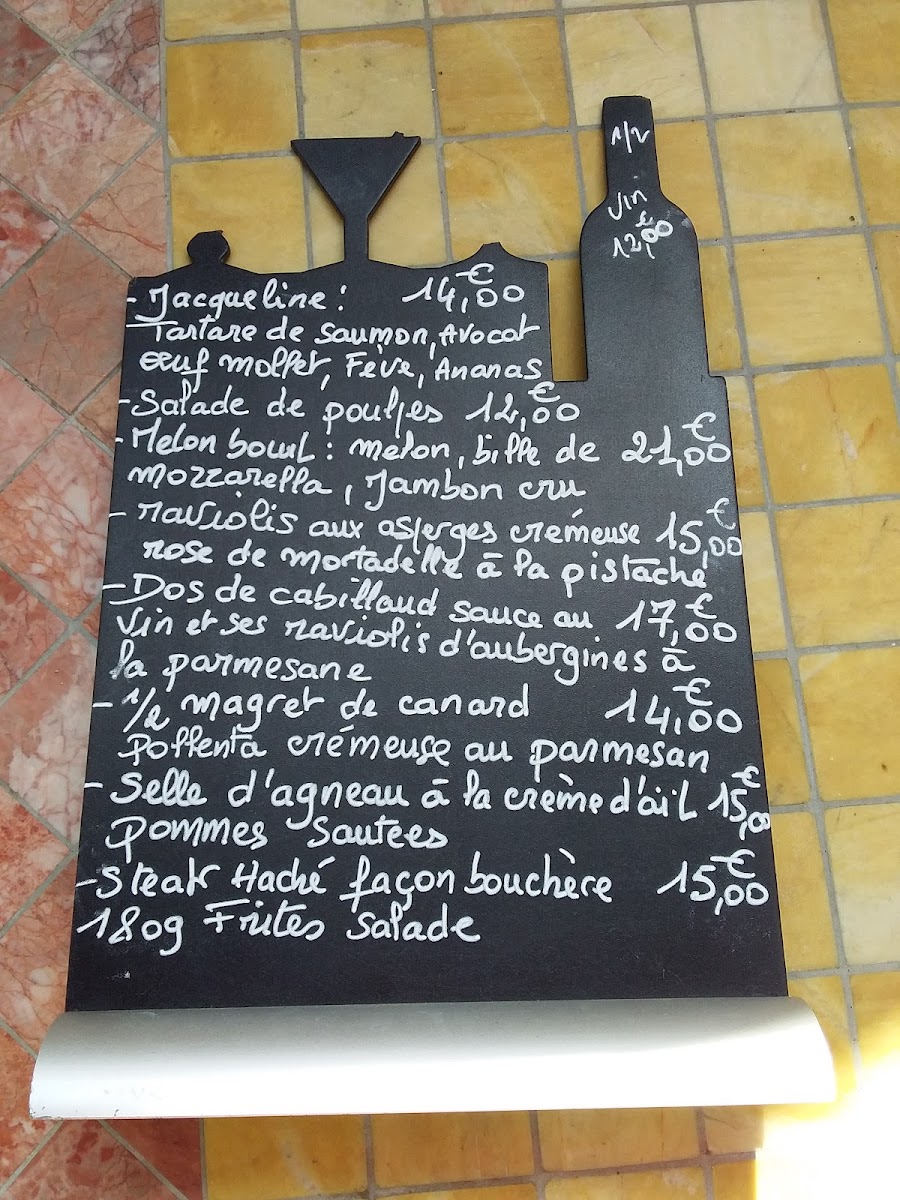 1/2
Vin
€
12,00
- Jacqueline : 14,00 €
Tartare de saumon, Avocat
œuf mollet, Fève, Ananas
- Salade de poulpes 12,00 €
- Melon bowl : melon, bille de 21,00 €
mozzarella, Jambon cru
- raviolis aux asperges crémeuse 15,00 €
rose de mortadelle à la pistache
- Dos de cabillaud sauce au 17,00 €
Vin et ses raviolis d'aubergines à
la parmesane
- 1/2 magret de canard 14,00 €
Pollenta crémeuse au parmesan
- Selle d'agneau à la crème d'aïl 15,00 €
pommes sautees
- Steak Haché façon bouchère 15,00 €
180g Frites salade